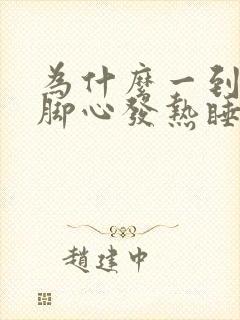 為什麼一到
腳心發熱睡
趙建中